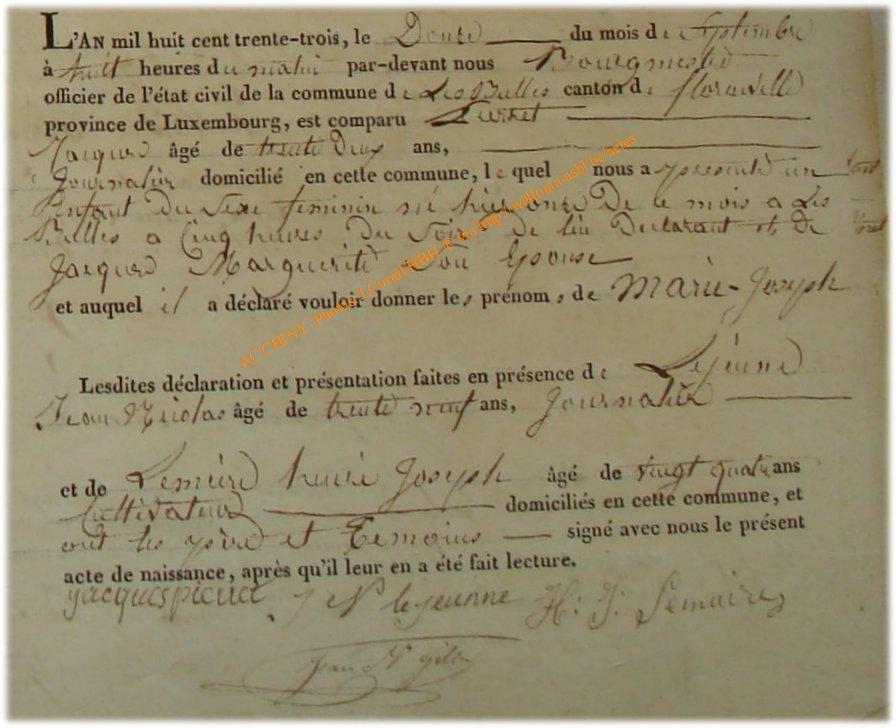 L'AN mil huit cent trente-trois, le Douze du mois de Septembre
à huit heures du matin par-devant nous Bourgmestre
officier de l'état civil de la commune de Les Bulles canton de florenville
province de Luxembourg, est comparu Pierret
Jacques âgé de trente Deux ans,
Journalier domicilié en cette commune, lequel nous a présenté un
Enfant du Sexe feminin né hier onze De ce mois a Les
Bulles a Cinq heures Du Soir de lui Declarant et de
Jacques Marguerite Son Epouse
et auquel il a déclaré vouloir donner les prénoms de Marie-Joseph
Lesdites déclaration et présentation faites en présence de Lejeune
Jean Nicolas âgé de trente neuf ans, Journalier
et de Lemaire henri Joseph âgé de vingt quatre ans
Cultivateur domiciliés en cette commune, et
ont les père et Temoins signé avec nous le présent
acte de naissance, après qu'il leur en a été fait lecture.
jacques pierret J N lejeunne H: J: Lemaire